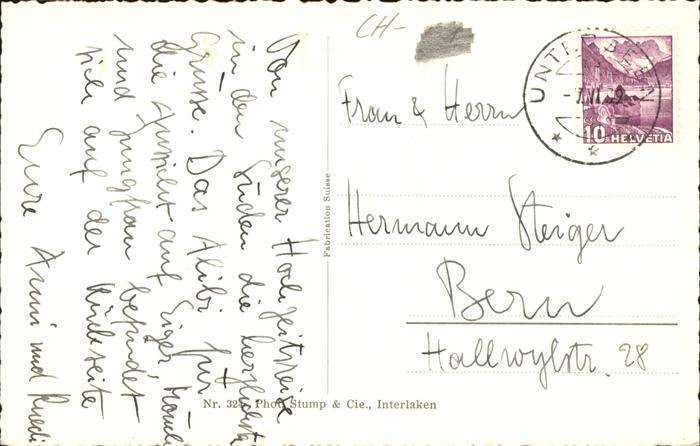 Von unserer Hochzeitsreise
in den Süden die herzlichsten
Grüsse. Das Alibi für
die Aussicht auf Eiger Mönch
und Jungfrau befindet
sich auf der Rückseite
Eure Anni und Ruedi
CH-
Frau & Herrn
Hermann Steiger
Bern
Hallwylstr. 28
UNTER
10 HELVETIA
Fabrication Suisse
Nr. Phot Stump & Cie., Interlaken